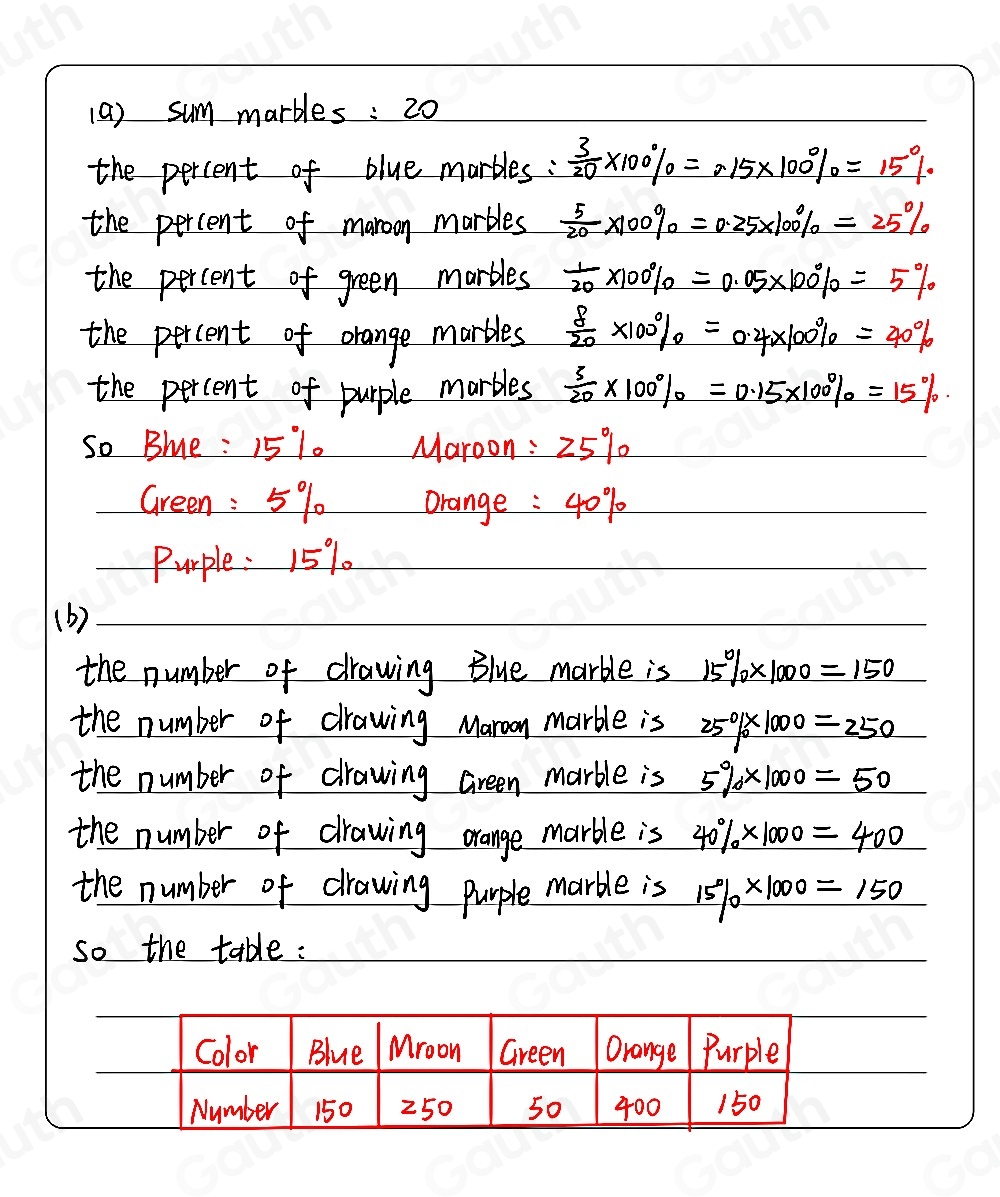 (a) sum marbles : 20
the percent of blue marbles : 3/20 ×100% = 0.15×100% = 15%.
the percent of maroon marbles 5/20 ×100% = 0.25×100% = 25%
the percent of green marbles 1/20 ×100% = 0.05×100% = 5%
the percent of orange marbles 8/20 ×100% = 0.4×100% = 40%
the percent of purple marbles 3/20 ×100% = 0.15×100% = 15%.
So Blue : 15% Maroon : 25%
Green : 5% Orange : 40%
Purple : 15%
(b)
the number of drawing Blue marble is 15%×1000 = 150
the number of drawing Maroon marble is 25%×1000 = 250
the number of drawing Green marble is 5%×1000 = 50
the number of drawing orange marble is 40%×1000 = 400
the number of drawing Purple marble is 15%×1000 = 150
So the table :
Color Blue Mroon Green Orange Purple
Number 150 250 50 400 150